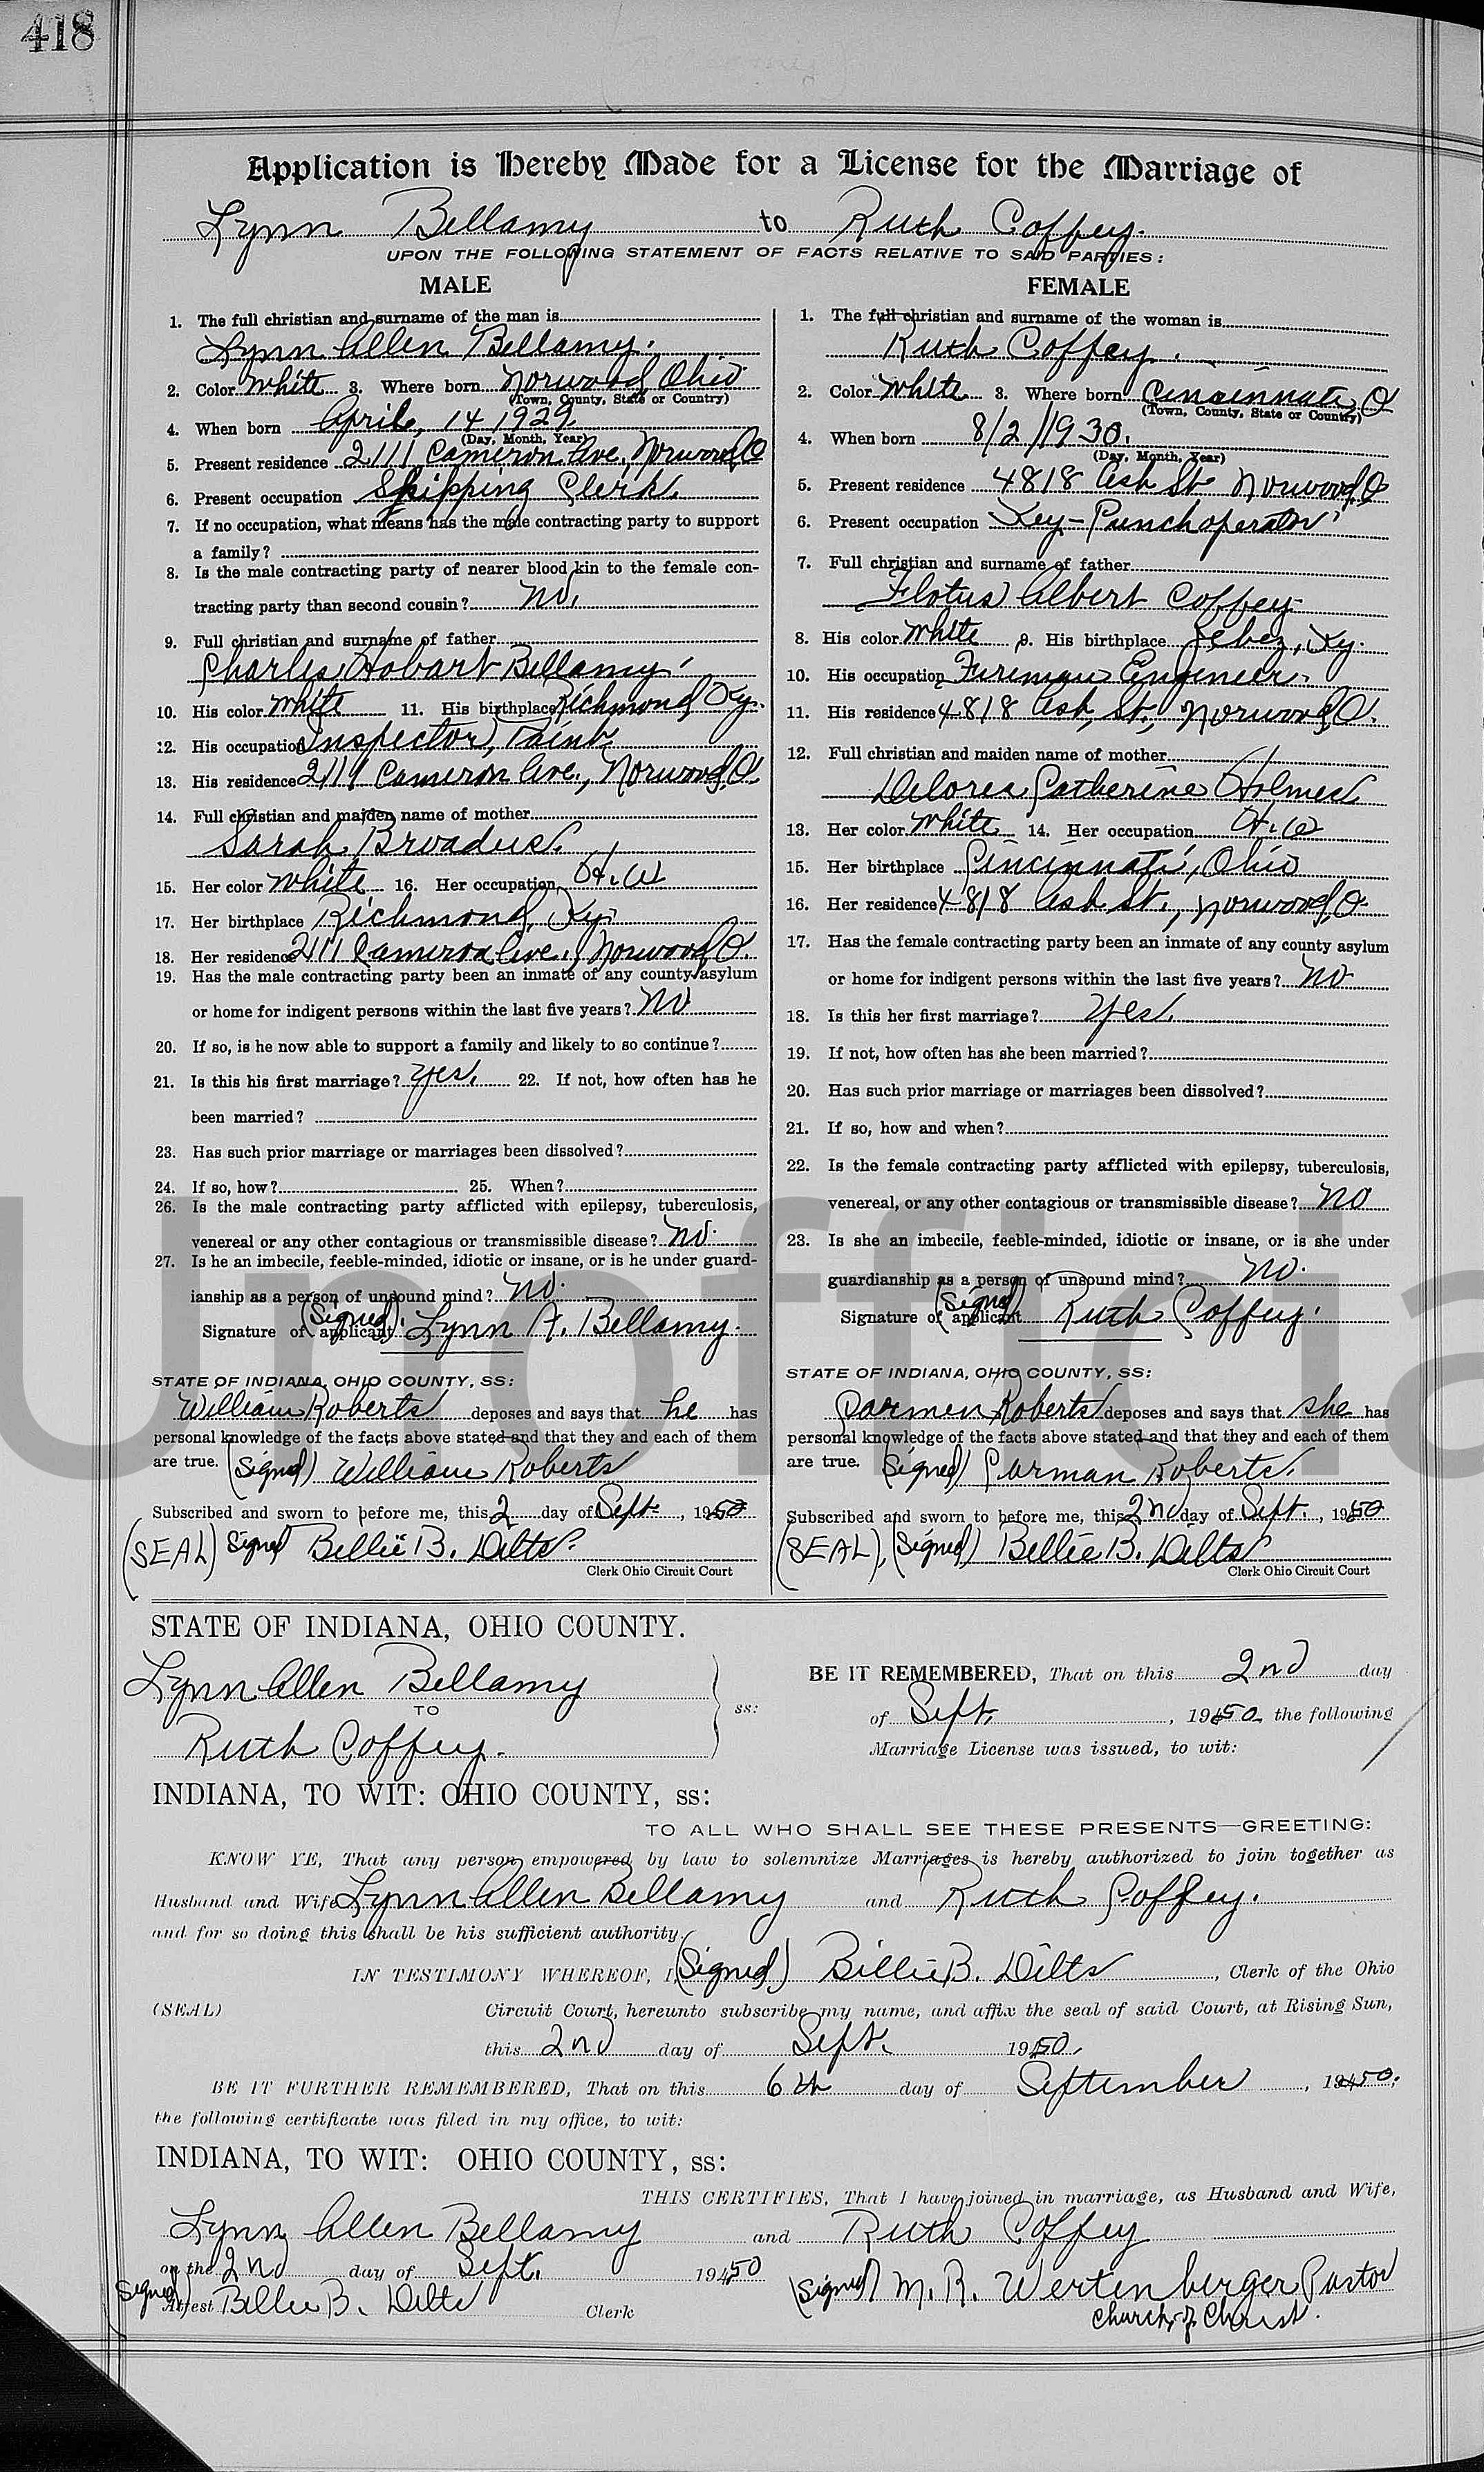 418
Application is Hereby Made for a License for the Marriage of
Lynn Bellamy to Ruth Coffey.
UPON THE FOLLOWING STATEMENT OF FACTS RELATIVE TO SAID PARTIES:
MALE
1. The full christian and surname of the man is
Lynn Allen Bellamy.
2. Color White 3. Where born Norwood, Ohio
(Town, County, State or Country)
4. When born April, 14 1929.
(Day, Month, Year)
5. Present residence 2111 Cameron Ave., Norwood, O
6. Present occupation Shipping Clerk.
7. If no occupation, what means has the male contracting party to support
a family?
8. Is the male contracting party of nearer blood kin to the female con-
tracting party than second cousin? No.
9. Full christian and surname of father
Charles Hobart Bellamy.
10. His color White 11. His birthplace Richmond, Ky.
12. His occupation Inspector, Paint.
13. His residence 2111 Cameron Ave., Norwood, O.
14. Full christian and maiden name of mother
Sarah Broadus.
15. Her color White 16. Her occupation H. W
17. Her birthplace Richmond, Ky.
18. Her residence 2111 Cameron Ave., Norwood O.
19. Has the male contracting party been an inmate of any county asylum
or home for indigent persons within the last five years? No
20. If so, is he now able to support a family and likely to so continue?
21. Is this his first marriage? Yes. 22. If not, how often has he
been married?
23. Has such prior marriage or marriages been dissolved?
24. If so, how? 25. When?
26. Is the male contracting party afflicted with epilepsy, tuberculosis,
venereal or any other contagious or transmissible disease? No.
27. Is he an imbecile, feeble-minded, idiotic or insane, or is he under guard-
ianship as a person of unsound mind? No.
Signature of applicant (Signed). Lynn A. Bellamy.
STATE OF INDIANA, OHIO COUNTY, SS:
William Roberts deposes and says that he has
personal knowledge of the facts above stated and that they and each of them
are true. (Signed) William Roberts
Subscribed and sworn to before me, this 2 day of Sept. , 1950
(SEAL) Signed Billie B. Dilts.
Clerk Ohio Circuit Court
FEMALE
1. The full christian and surname of the woman is
Ruth Coffey.
2. Color White 3. Where born Cincinnati, O
(Town, County, State or Country)
4. When born 8/2/1930.
(Day, Month, Year)
5. Present residence 4818 Ash St. Norwood, O
6. Present occupation Key-Punch operator
7. Full christian and surname of father
Flotus Albert Coffey.
8. His color White 9. His birthplace Jebez, Ky.
10. His occupation Fireman Engineer.
11. His residence 4818 Ash, St., Norwood, O.
12. Full christian and maiden name of mother
Delores Catherine Holmes
13. Her color White 14. Her occupation H. W
15. Her birthplace Cincinnati, Ohio
16. Her residence 4818 Ash St., Norwood, O.
17. Has the female contracting party been an inmate of any county asylum
or home for indigent persons within the last five years? No
18. Is this her first marriage? Yes.
19. If not, how often has she been married?
20. Has such prior marriage or marriages been dissolved?
21. If so, how and when?
22. Is the female contracting party afflicted with epilepsy, tuberculosis,
venereal, or any other contagious or transmissible disease? No
23. Is she an imbecile, feeble-minded, idiotic or insane, or is she under
guardianship as a person of unsound mind? No.
Signature of applicant (Signed) Ruth Coffey.
STATE OF INDIANA, OHIO COUNTY, SS:
Carmen Roberts deposes and says that she has
personal knowledge of the facts above stated and that they and each of them
are true. (Signed) Carman Roberts.
Subscribed and sworn to before me, this 2nd day of Sept. , 1950
(SEAL), (Signed) Billie B. Dilts
Clerk Ohio Circuit Court
Unofficia
STATE OF INDIANA, OHIO COUNTY.
Lynn Allen Bellamy
TO
Ruth Coffey.
ss:
BE IT REMEMBERED, That on this 2nd day
of Sept. , 1950 the following
Marriage License was issued, to wit:
INDIANA, TO WIT: OHIO COUNTY, ss:
TO ALL WHO SHALL SEE THESE PRESENTS—GREETING:
KNOW YE, That any person empowered by law to solemnize Marriages is hereby authorized to join together as
Husband and Wife Lynn Allen Bellamy and Ruth Coffey.
and for so doing this shall be his sufficient authority.
IN TESTIMONY WHEREOF, I, (Signed) Billie B. Dilts , Clerk of the Ohio
(SEAL) Circuit Court, hereunto subscribe my name, and affix the seal of said Court, at Rising Sun,
this 2nd day of Sept. 1950.
BE IT FURTHER REMEMBERED, That on this 6th day of September , 1950.
the following certificate was filed in my office, to wit:
INDIANA, TO WIT: OHIO COUNTY, ss:
THIS CERTIFIES, That I have joined in marriage, as Husband and Wife,
Lynn Allen Bellamy and Ruth Coffey
on the 2nd day of Sept. 1950
(Signed) M. R. Wertenberger Pastor
Church of Christ.
(Signed) Attest Billie B. Dilts Clerk